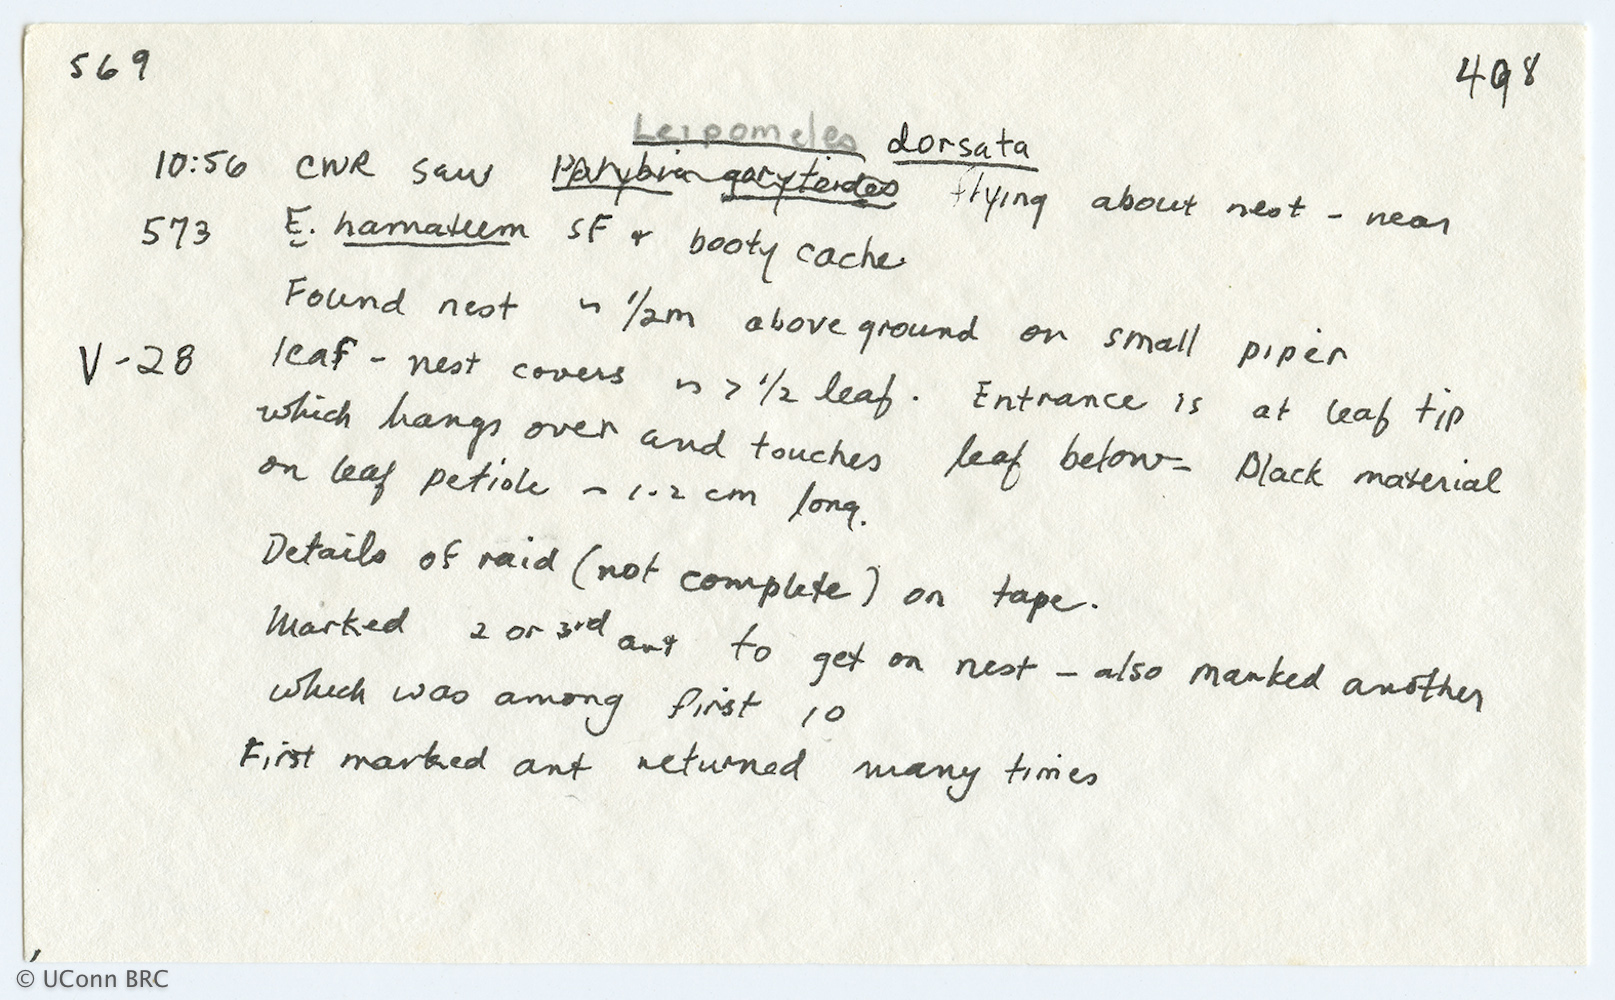 569
498
Leipomeles dorsata
10:56 CWR saw Polybia gorytoides flying about nest - near
573 E. hamatum SF + booty cache.
Found nest ~ 1/2m above ground on small piper
V-28 leaf - nest covers ~ > 1/2 leaf. Entrance is at leaf tip
which hangs over and touches leaf below - Black material
on leaf petiole ~ 1.2 cm long.
Details of raid (not complete) on tape.
Marked 2 or 3rd ant to get on nest - also marked another
which was among first 10
First marked ant returned many times
© UConn BRC